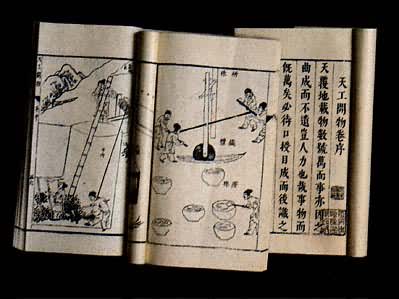 天工開物卷序
天覆地載物數號萬而事亦因之
曲成而不遺豈人力也哉事物而
既萬矣必待口授目成而後識之
天工開物